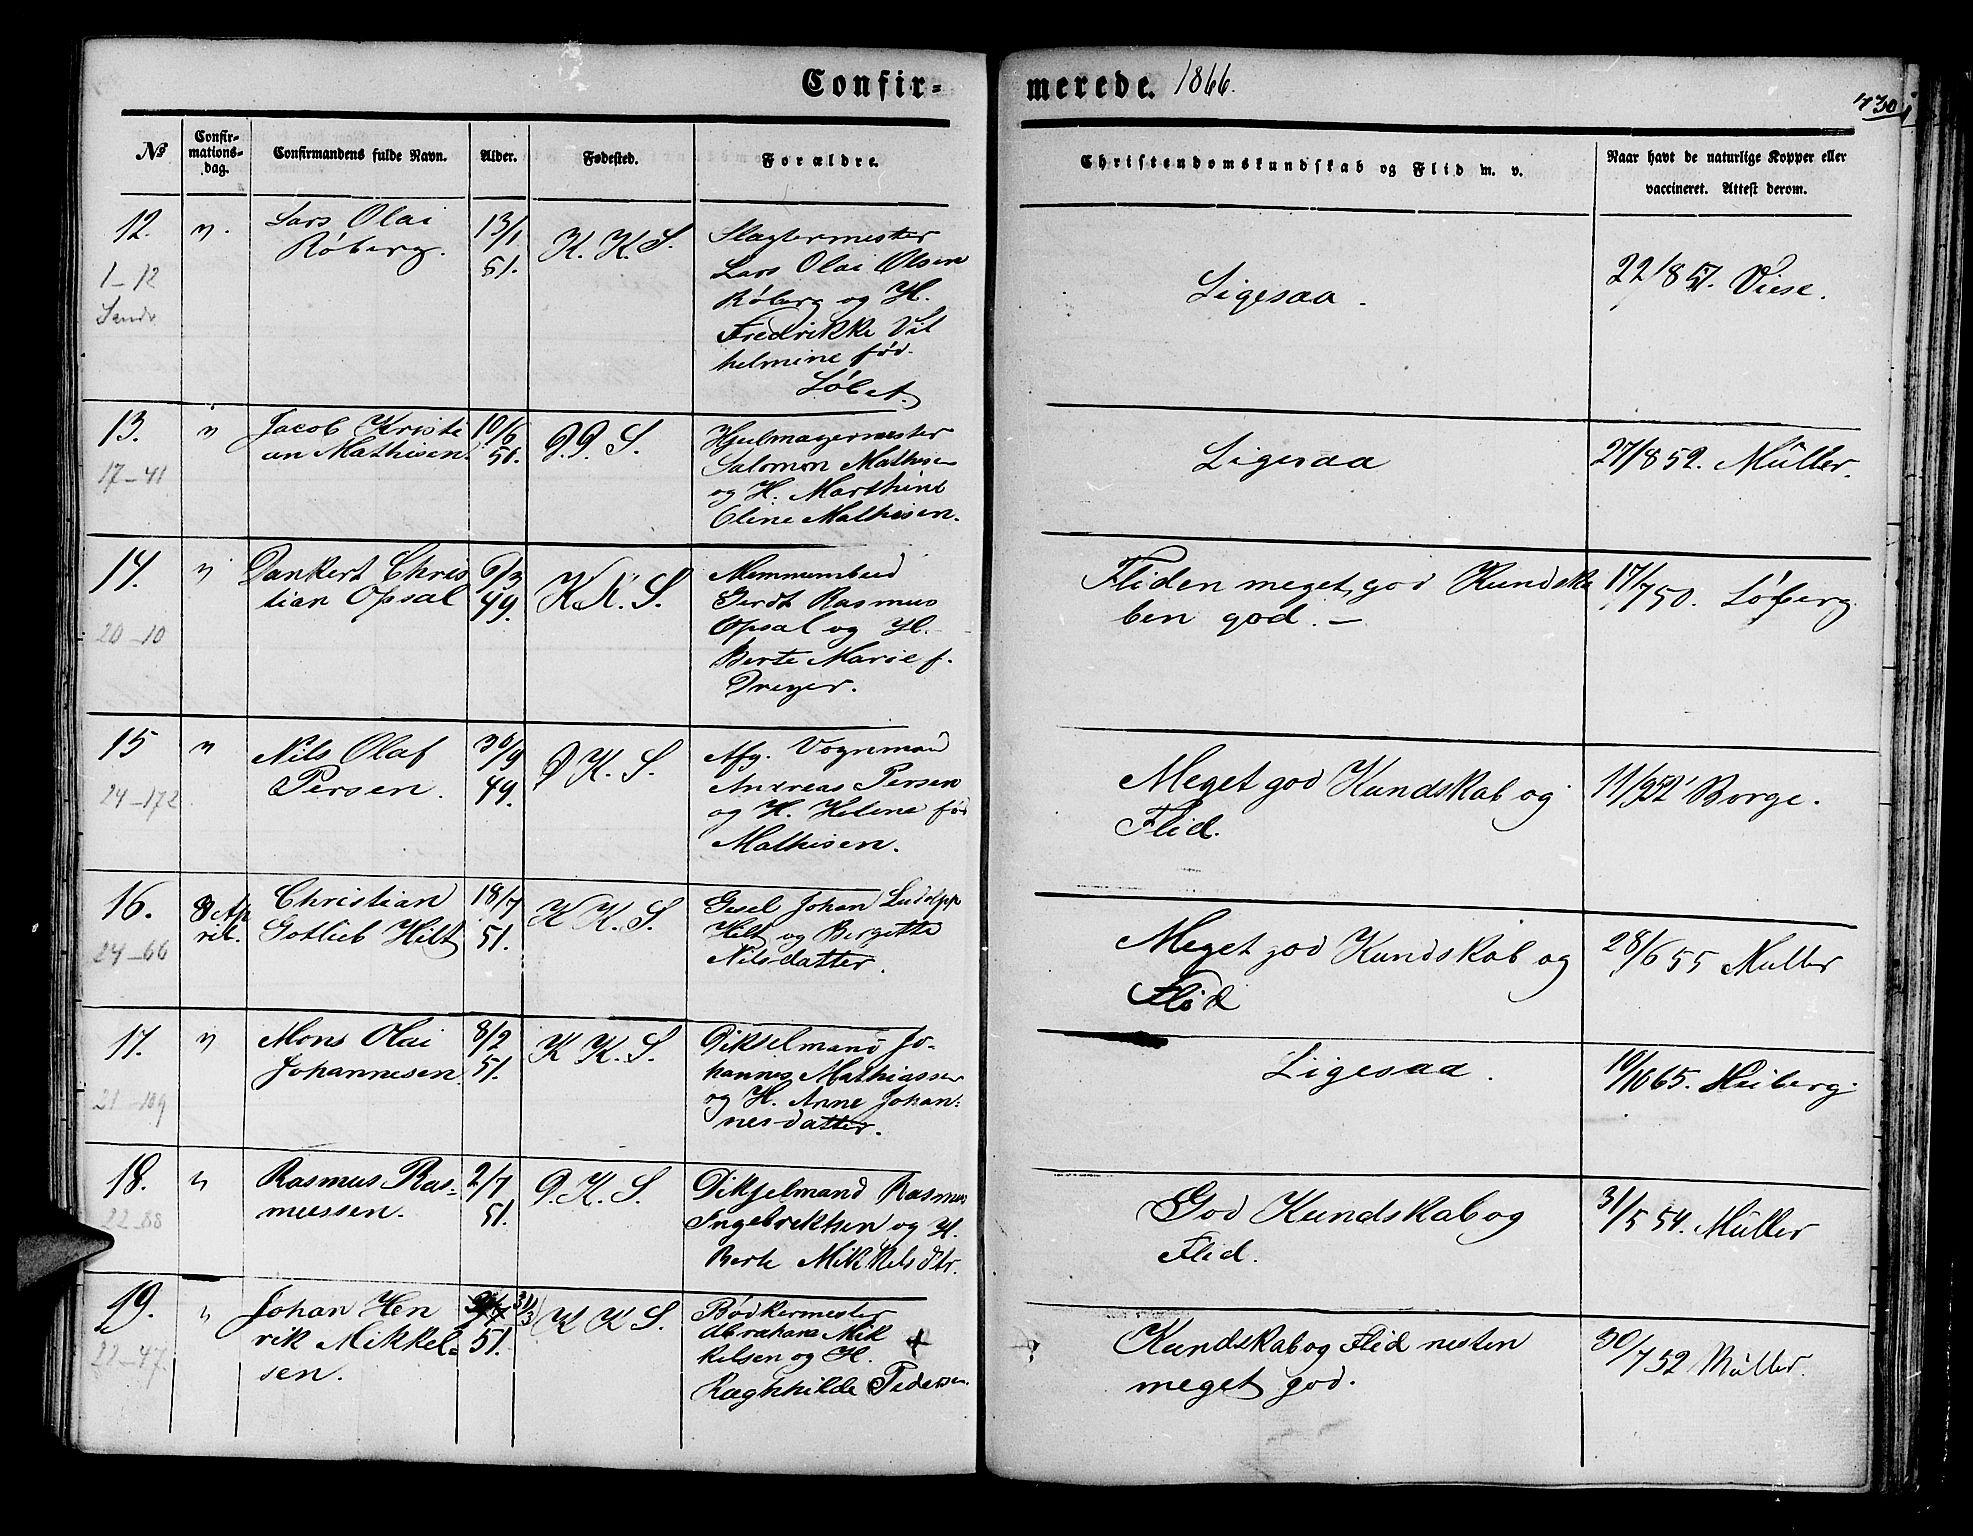 Confir-
merede. 1866.
430
№
Confir-
mations-
dag.
Confirmandens fulde Navn.
Alder.
Fødested.
Forældre.
Christendomskundskab og Flid m. v.
Naar havt de naturlige Kopper eller
vaccineret. Attest derom.
12.
1-12
"
Lars Olai
Røberg.
13/1
51.
K. K. S.
Slagtermester
Lars Olai Olsen
Røberg og H.
Fredrikke Vil
helmine fød.
Ligesaa.
22/8 57. Wiese.
13.
17-41
"
Jacob Kristi
an Mathisen.
10/6
51.
D. S.
Hjulmagermester
Salomon Mathisen
og H. Marthine
Oline Mathisen.
Ligesaa
27/8 52. Müller.
14.
20-10
"
Dankert Chris
tian Opsal
6/3
49.
K. K. S.
Gerdt Rasmus
Opsal og H.
Berte Marie f.
Dreyer.
Fliden meget god Kundska
ben god. -
17/7 50. Løberg
15
24-172
"
Nils Olaf
Persen.
30/9
49.
D K. S.
Afg. Vognmand
Andreas Persen
og H. Helene fød
Mathisen.
Meget god Kundskab og
Flid.
11/9 52 Borge.
16.
24-66
8 Ap
ril.
Christian
Gotlieb Hilt
18/7
51.
K K. S.
Gesel Johan Ludolpp
Hilt og Bergitte
Nilsdatter.
Meget god Kundskab og
Flid
28/6 55 Müller
17.
21-109
"
Mons Olai
Johannesen
8/2
51.
K K. S.
Dikselmand Jo-
hannes Mathiassen
og H. Anne Johan-
nesdatter.
Ligesaa.
10/10 65. Heiberg.
18.
22-88
"
Rasmus Ras-
mussen.
2/7
51.
D. K. S.
Dikselmand Rasmus
Ingebrektsen og H.
Berte Mikkelsdtr.
God Kundskab og
Flid.
31/5 54. Müller
19.
22-47
"
Johan Hen
rik Mikkel-
sen.
31/3
51.
K K S.
Bødkermester
Abraham Mik
kelsen og H. +
Raghhilde Pedersen.
Kundskab og Flid nesten
meget god.
30/7 52 Müller.